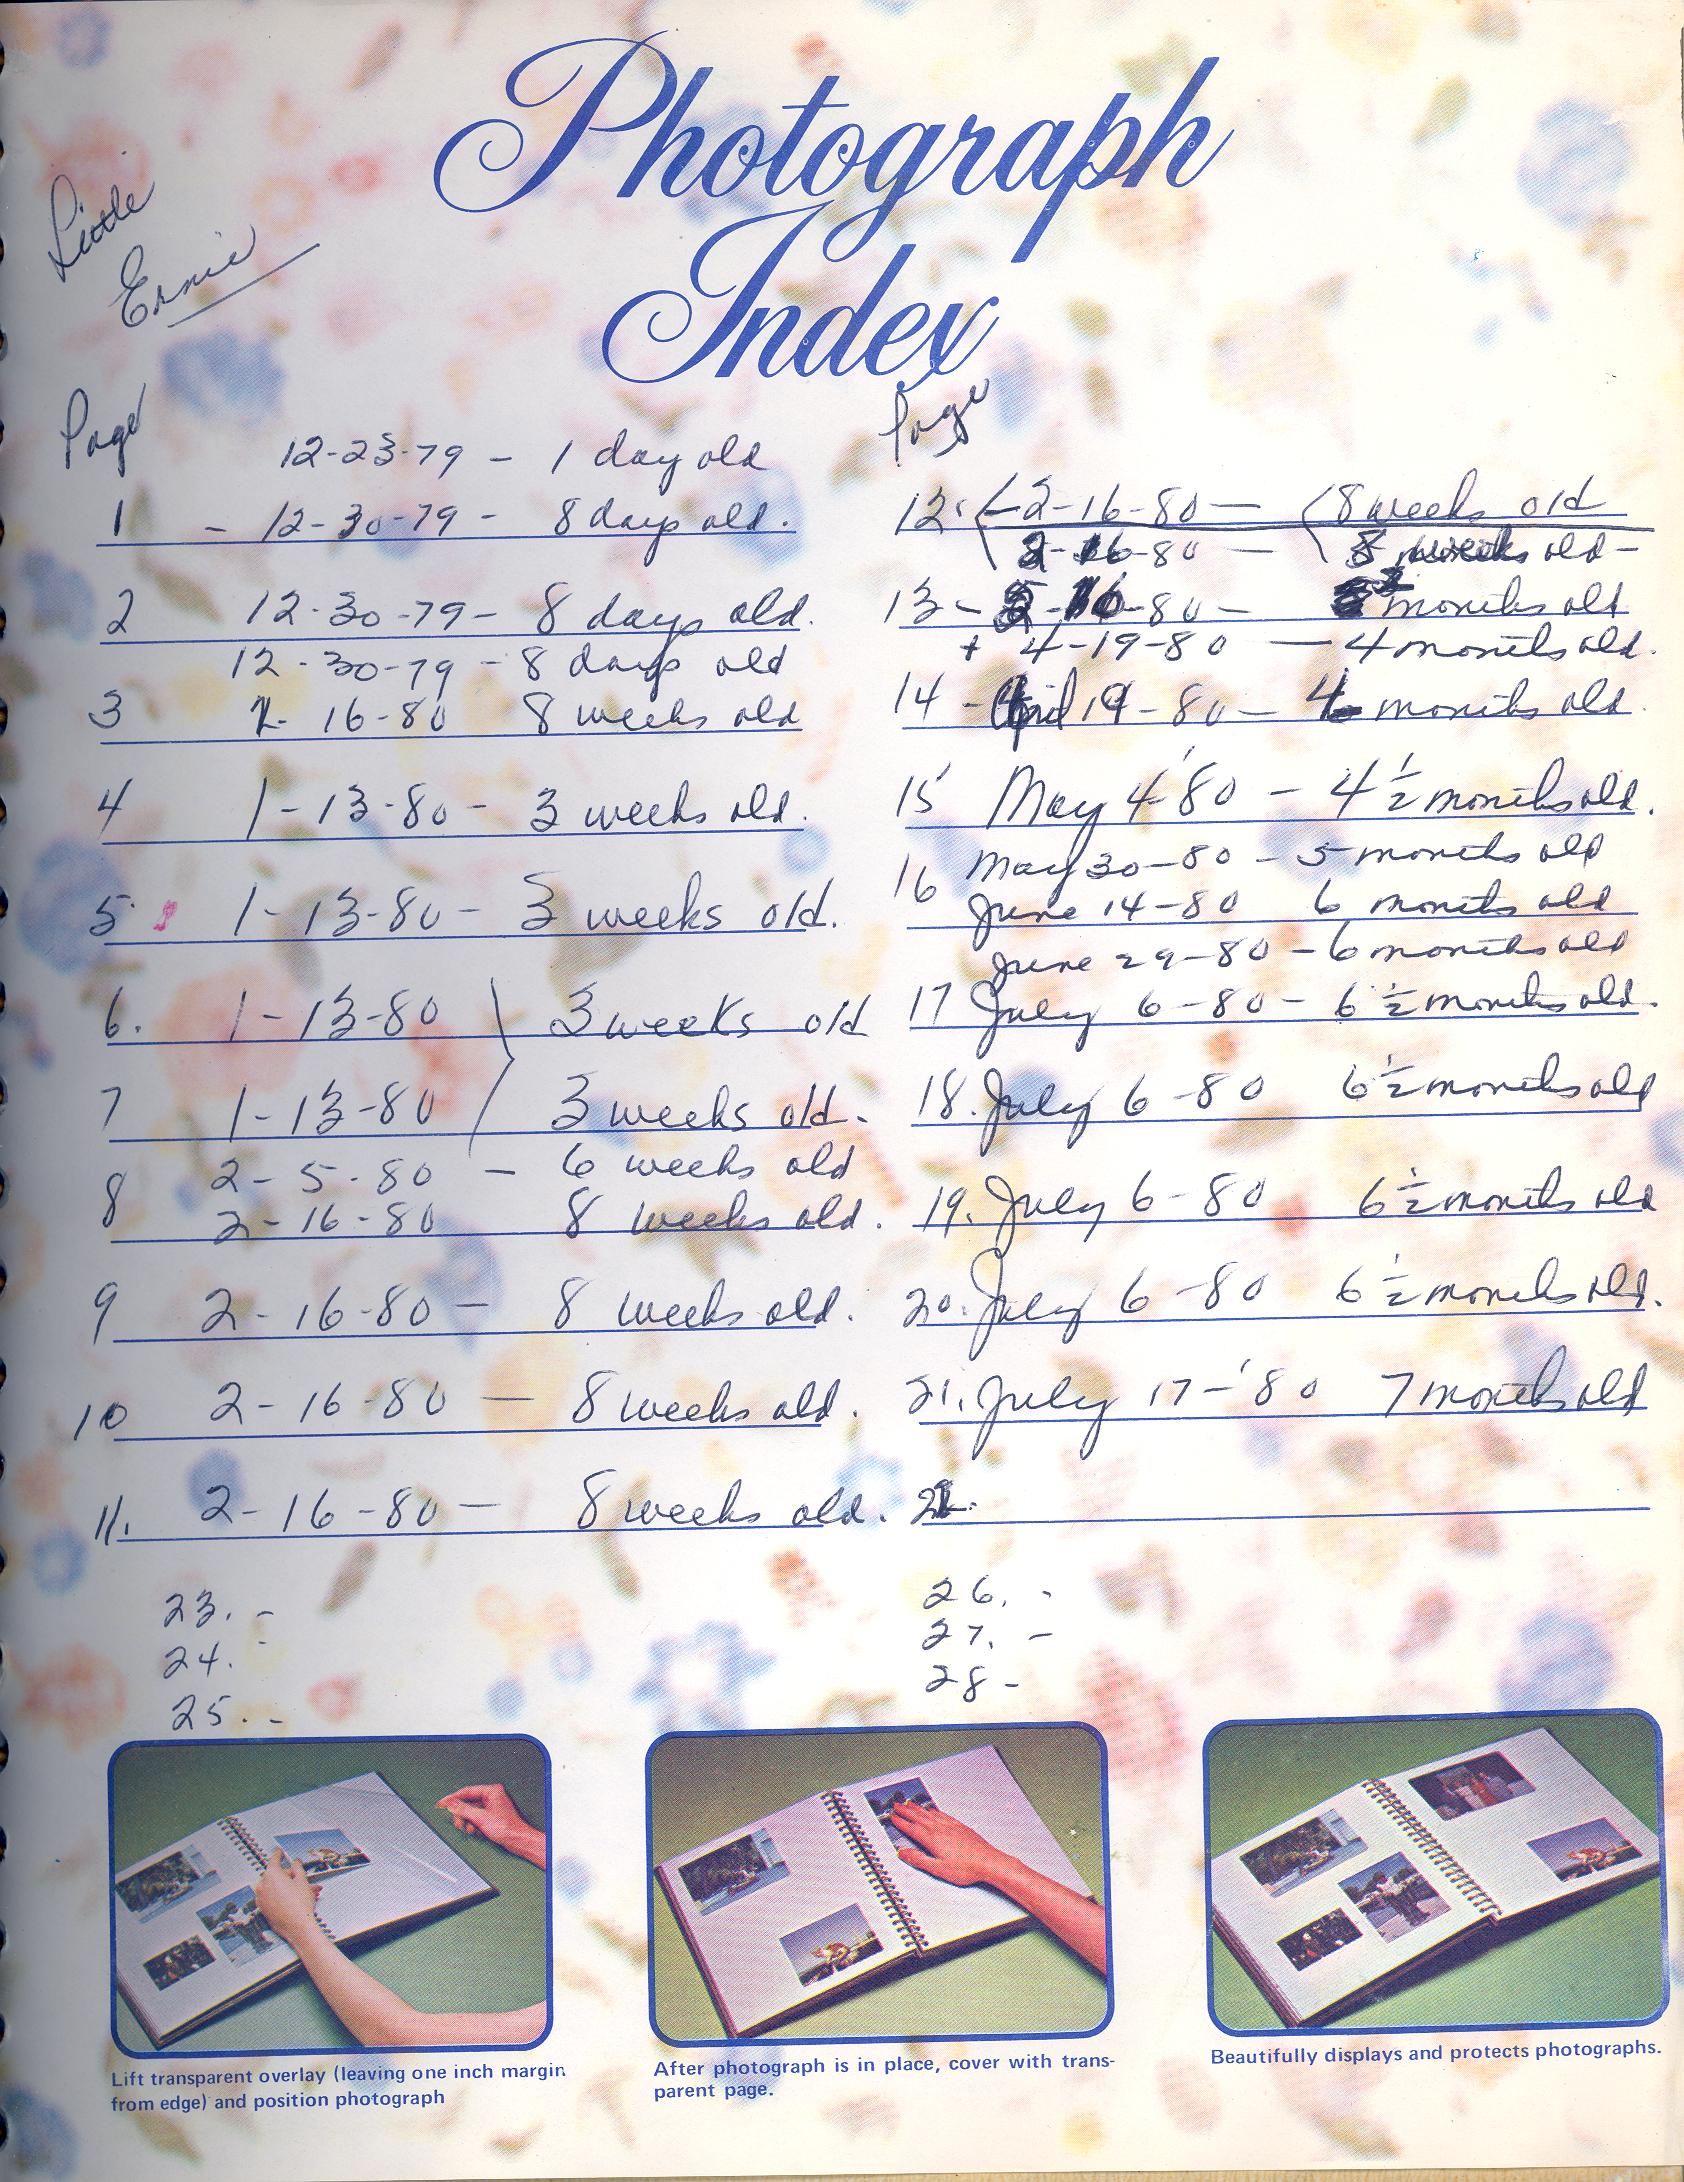 Photograph
Index
Little
Ernie
Page
12-23-79 - 1 day old
1 - 12-30-79 - 8 days old.
2 12-30-79- 8 days old.
12-30-79 - 8 days old
3 2- 16-80 8 weeks old
4 1-13-80- 3 weeks old.
5. 1-13-80- 3 weeks old.
6. 1-13-80 3 weeks old
7 1-13-80 3 weeks old.
8 2-5-80 - 6 weeks old
2-16-80 8 weeks old.
9 2-16-80- 8 weeks old.
10 2-16-80 - 8 weeks old.
11. 2-16-80- 8 weeks old.
Page
12. -2-16-80- 8 weeks old
2-16-80 - 8 weeks old-
13 - -80- months old
+ 4-19-80 - 4 months old.
14 - April 19-80- 4 months old.
15 May 4 '80 - 4 1/2 months old.
16 May 30-80 - 5 months old
June 14-80 6 months old
June 29-80 - 6 months old
17 July 6-80- 6 1/2 months old.
18. July 6-80 6 1/2 months old
19. July 6-80 6 1/2 months old
20. July 6-80 6 1/2 months old.
21. July 17-'80 7 months old
22.
23. -
24. -
25. -
26. -
27. -
28 -
Lift transparent overlay (leaving one inch margin
from edge) and position photograph
After photograph is in place, cover with trans-
parent page.
Beautifully displays and protects photographs.